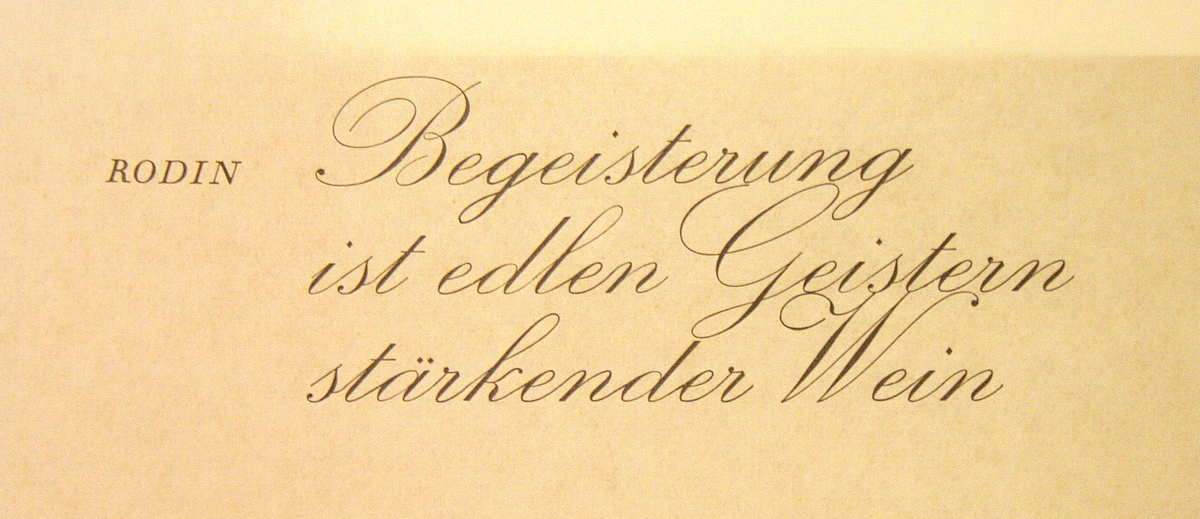 RODIN Begeisterung
ist edlen Geistern
stärkender Wein